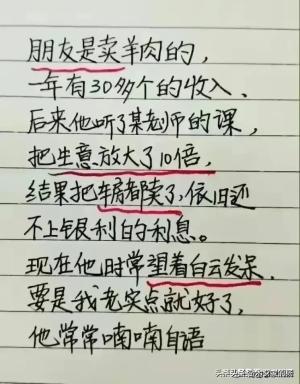 朋友是卖羊肉的，
一年有30多个的收入、
后来他听了某老师的课，
把生意放大了10倍，
结果把车房都卖了，依旧还
不上银利的利息。
现在他时常望着白云发呆
要是我老实点就好了，
他常常喃喃自语